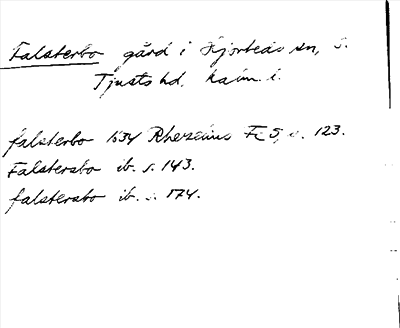 Falsterbo gård i Hjorteds sn, S.
Tjusts hd, Kalm. l.
falsterbo 1634 Rhezelius Fc 5, s. 123.
Falstersbo ib. s. 143.
falstersbo ib. s. 174.